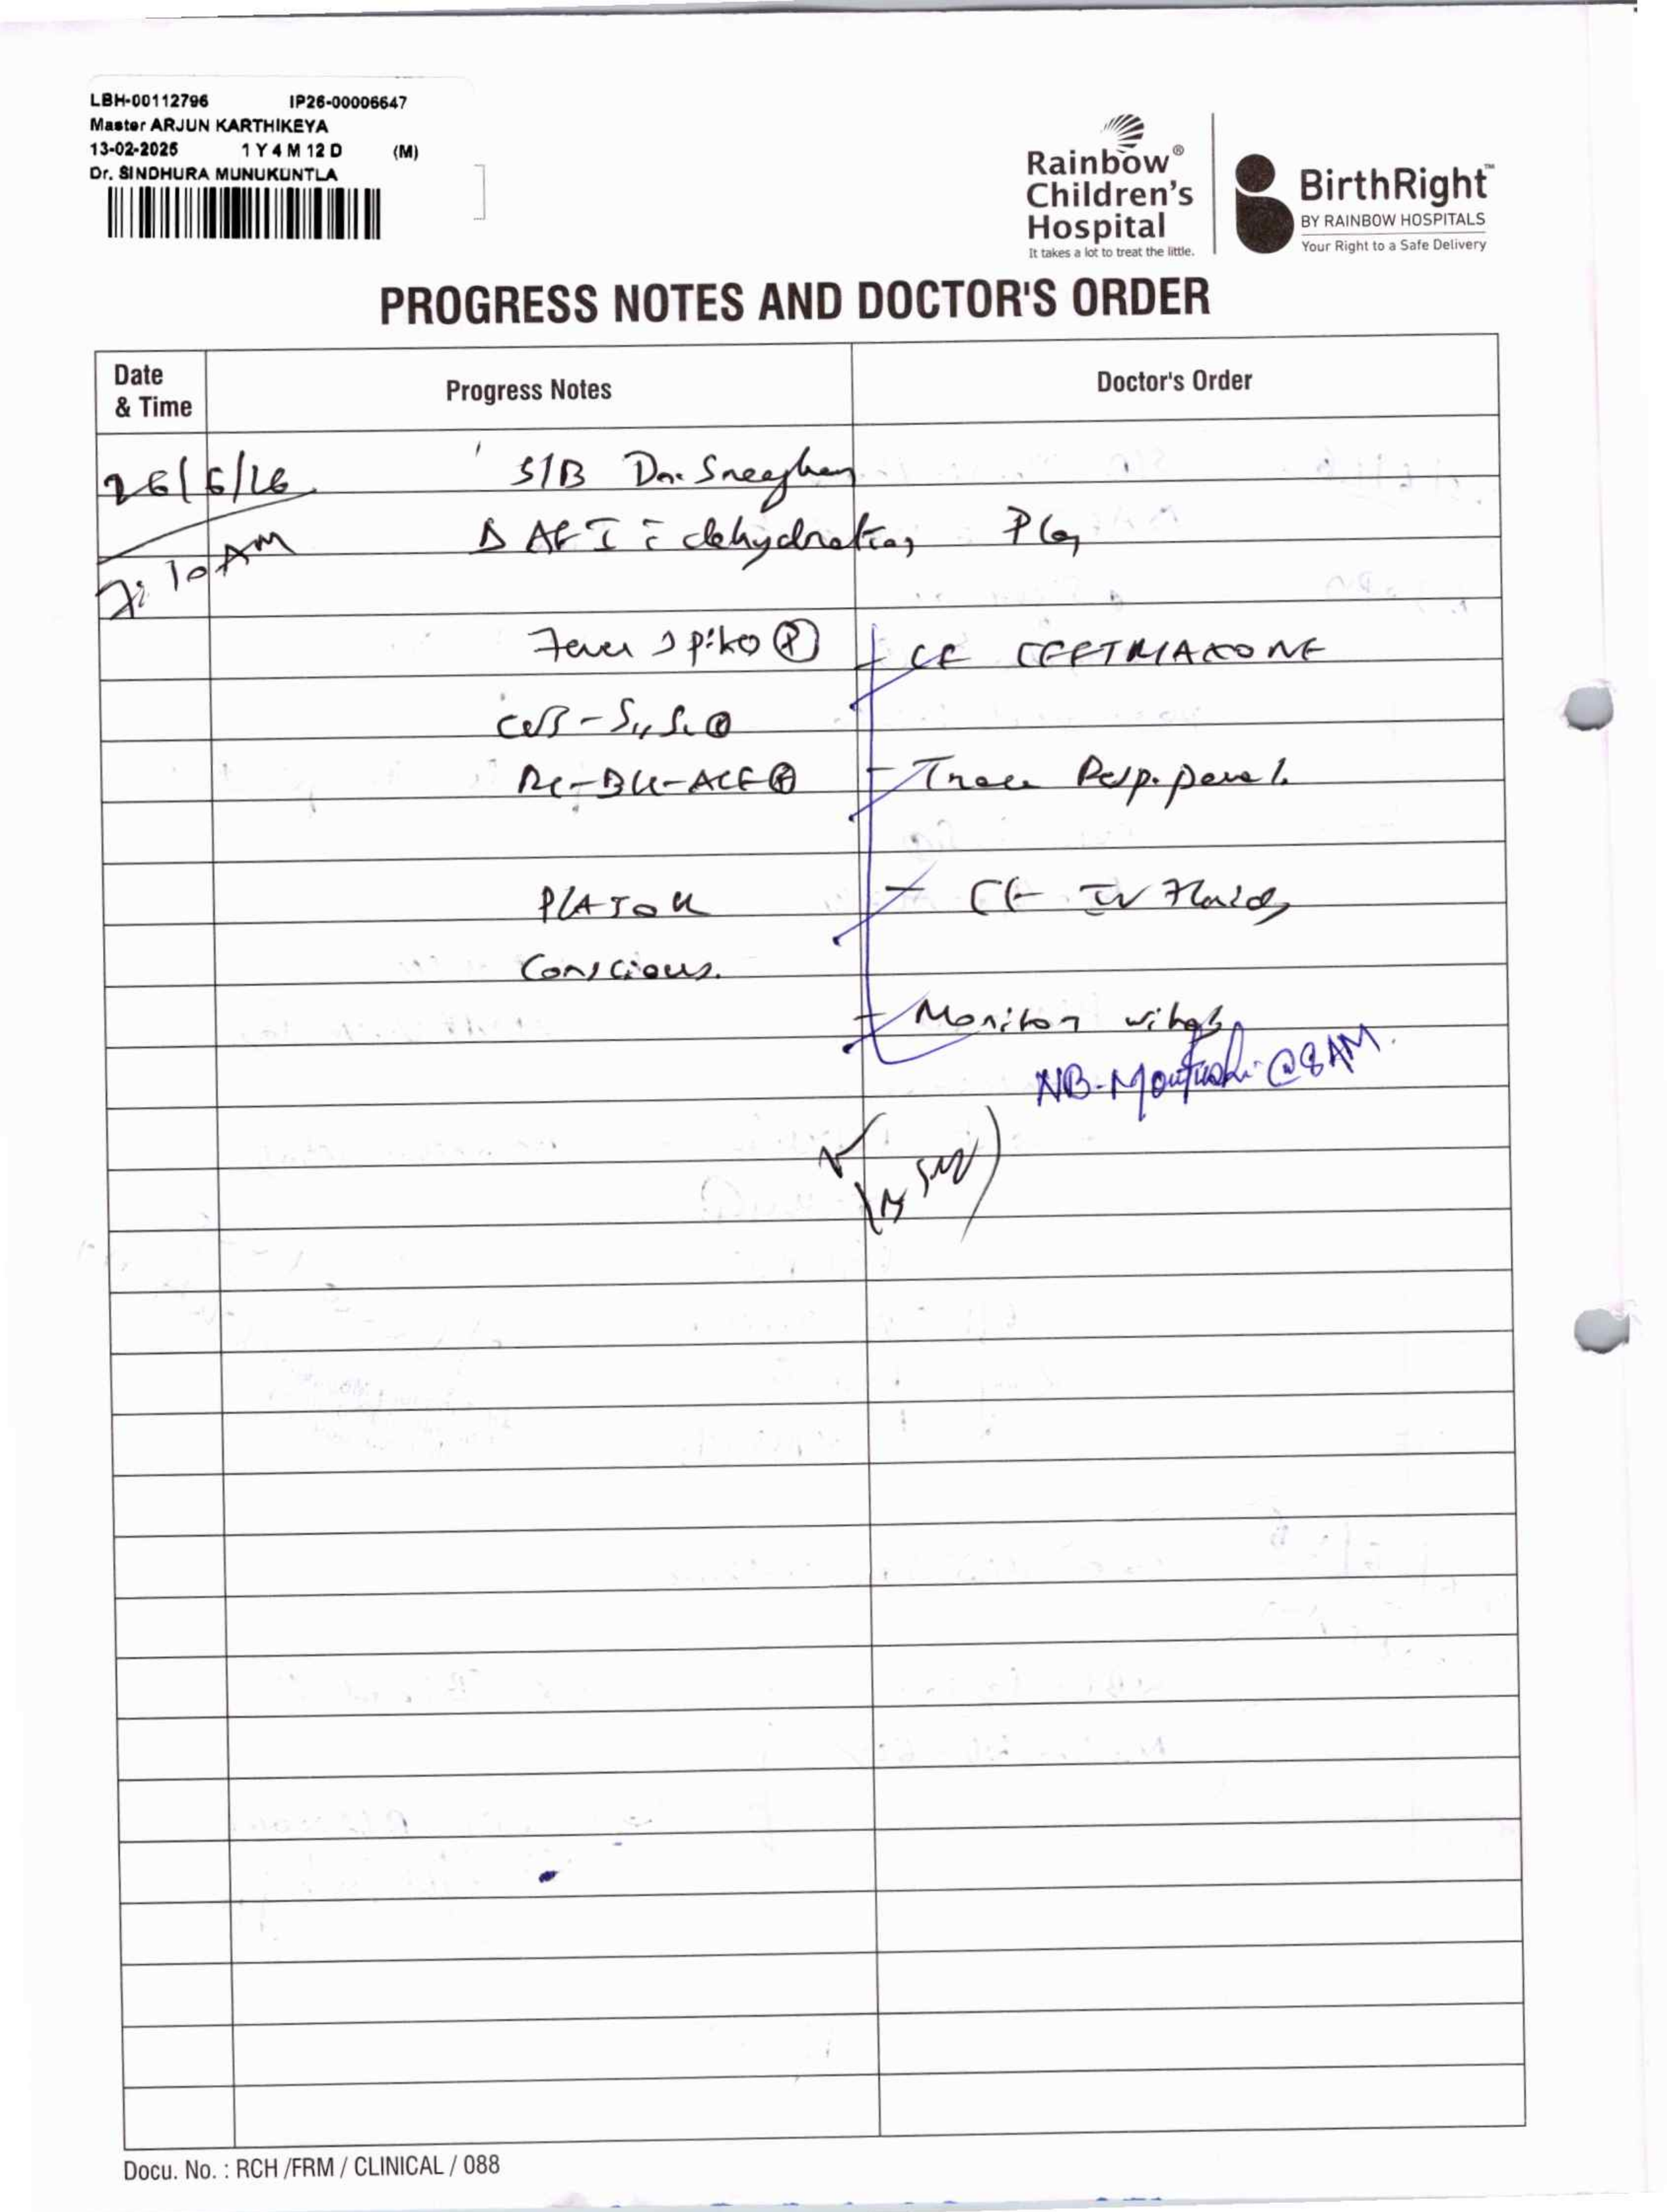 LBH-00112796 IP26-00006647
Master ARJUN KARTHIKEYA
13-02-2025 1 Y 4 M 12 D (M)
Dr. SINDHURA MUNUKUNTLA
Rainbow®
Children's
Hospital
It takes a lot to treat the little.
BirthRight™
BY RAINBOW HOSPITALS
Your Right to a Safe Delivery
PROGRESS NOTES AND DOCTOR'S ORDER
Date & Time
Progress Notes
Doctor's Order
26/6/26 S/B Dr.
7:10 AM
Δ AFI c̄ dehydration
Fever spike - CE CEFTRIAXONE
CVS - S1, S2
BL-AE - Trace Resp. panel.
P/A SOft - IV Fluids
Conscious.
- Monitor vitals
NB- @8AM.
Docu. No. : RCH /FRM / CLINICAL / 088